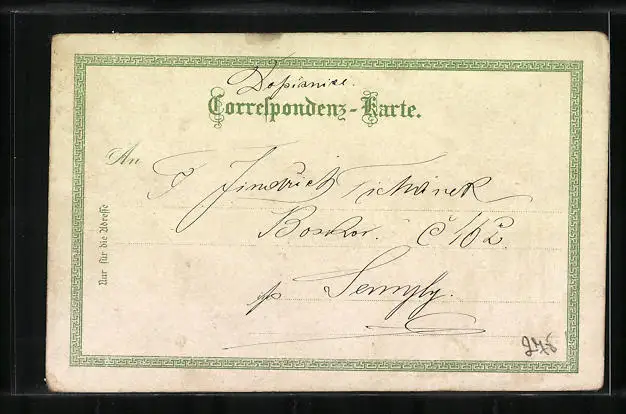 Dopisnice.
Correspondenz-Karte.
An
T. Jindřich Tichánek
Boskov. č 162.
p Semyly.
Nur für die Adresse
278